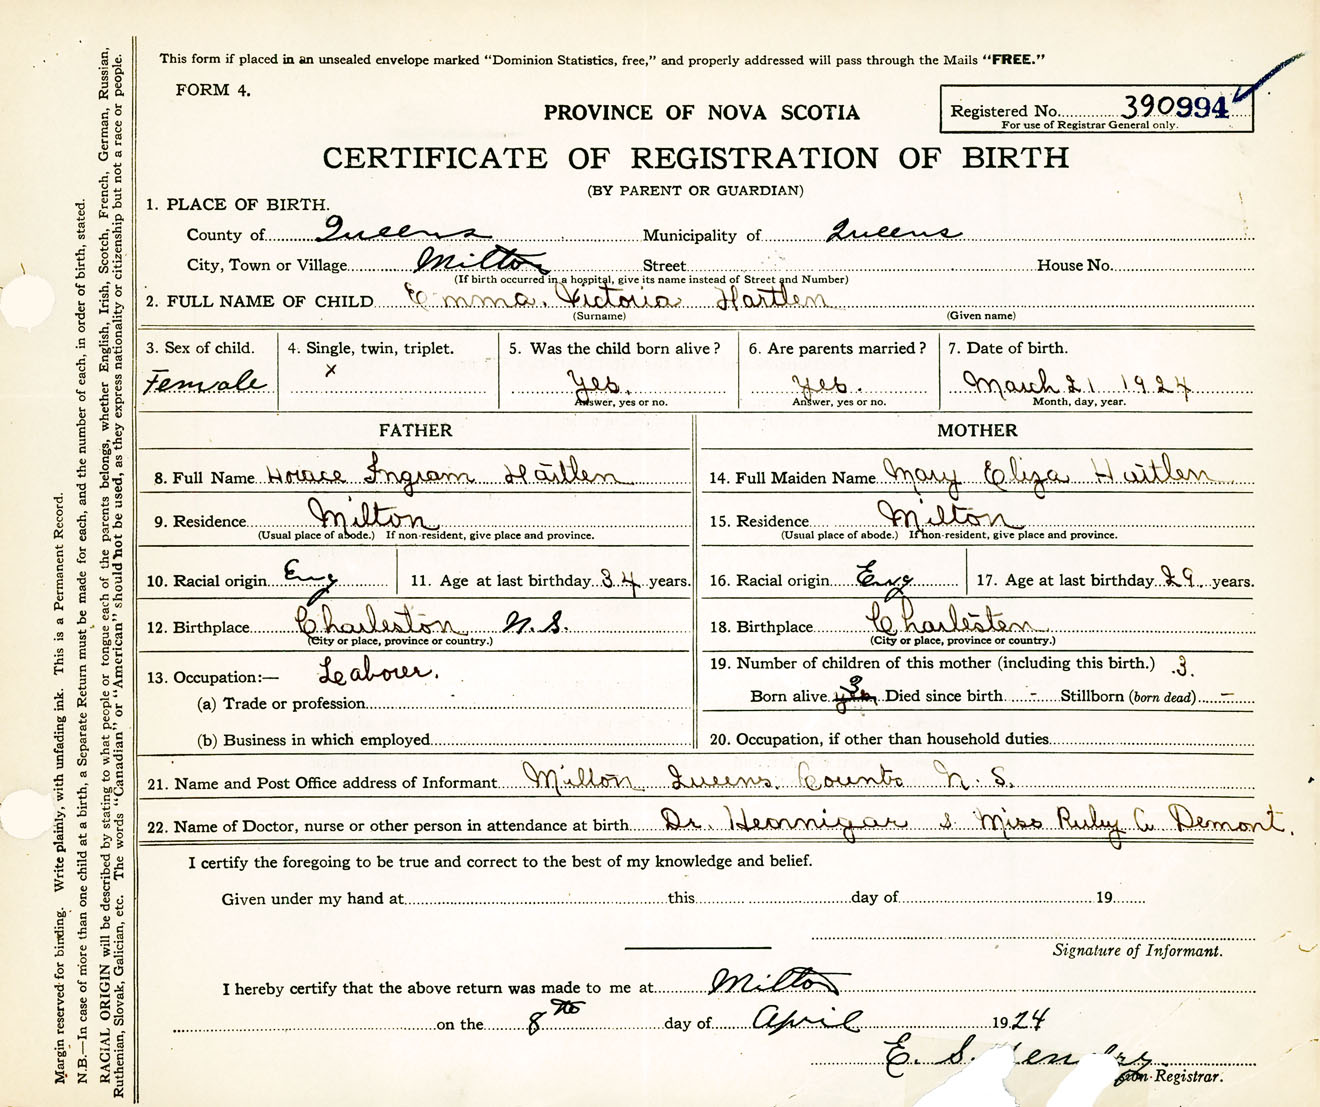 This form if placed in an unsealed envelope marked “Dominion Statistics, free,” and properly addressed will pass through the Mails “FREE.”
FORM 4.
Registered No. 390994
For use of Registrar General only.
PROVINCE OF NOVA SCOTIA
CERTIFICATE OF REGISTRATION OF BIRTH
(BY PARENT OR GUARDIAN)
1. PLACE OF BIRTH.
County of Queens Municipality of Queens
City, Town or Village Milton Street House No.
(If birth occurred in a hospital, give its name instead of Street and Number)
2. FULL NAME OF CHILD Emma. Victoria Hartlen
(Surname) (Given name)
3. Sex of child. 4. Single, twin, triplet. 5. Was the child born alive? 6. Are parents married? 7. Date of birth.
Female x Yes. Yes. March 21 1924
Answer, yes or no. Answer, yes or no. Month, day, year.
FATHER
8. Full Name Horace Ingram Hartlen
9. Residence Milton
(Usual place of abode.) If non-resident, give place and province.
10. Racial origin Eng 11. Age at last birthday 34 years.
12. Birthplace Charleston N.S.
(City or place, province or country.)
13. Occupation:— Leaborer.
(a) Trade or profession
(b) Business in which employed
MOTHER
14. Full Maiden Name Mary Eliza Hartlen
15. Residence Milton
(Usual place of abode.) If non-resident, give place and province.
16. Racial origin Eng 17. Age at last birthday 29 years.
18. Birthplace Charlesten
(City or place, province or country.)
19. Number of children of this mother (including this birth.) 3.
Born alive 3 Died since birth - Stillborn (born dead) -
20. Occupation, if other than household duties
21. Name and Post Office address of Informant Milton Queens. Counto N. S.
22. Name of Doctor, nurse or other person in attendance at birth Dr. Hennigar & Miss Ruby A Demont.
I certify the foregoing to be true and correct to the best of my knowledge and belief.
Given under my hand at this day of 19
Signature of Informant.
I hereby certify that the above return was made to me at Milton
on the 8th day of April 1924
E. S.
Registrar.
Margin reserved for binding. Write plainly, with unfading ink. This is a Permanent Record.
N.B.—In case of more than one child at a birth, a Separate Return must be made for each, and the number of each, in order of birth, stated.
RACIAL ORIGIN will be described by stating to what people or tongue each of the parents belongs, whether English, Irish, Scotch, French, German, Russian,
Ruthenian, Slovak, Galician, etc. The words “Canadian” or “American” should not be used, as they express nationality or citizenship but not a race or people.